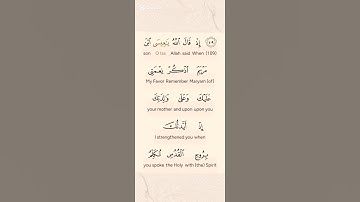 إِذْ قَالَ ٱللَّهُ يَـٰعِيسَى ٱبْنَ
son O Isa Allah said When (109)
مَرْيَمَ ٱذْكُرْ نِعْمَتِى
My Favor Remember Maryam (of)
عَلَيْكَ وَعَلَىٰ وَٰلِدَتِكَ
your mother and upon upon you
إِذْ أَيَّدتُّكَ
I strengthened you when
بِرُوحِ ٱلْقُدُسِ تُكَلِّمُ
you spoke the Holy with (the) Spirit